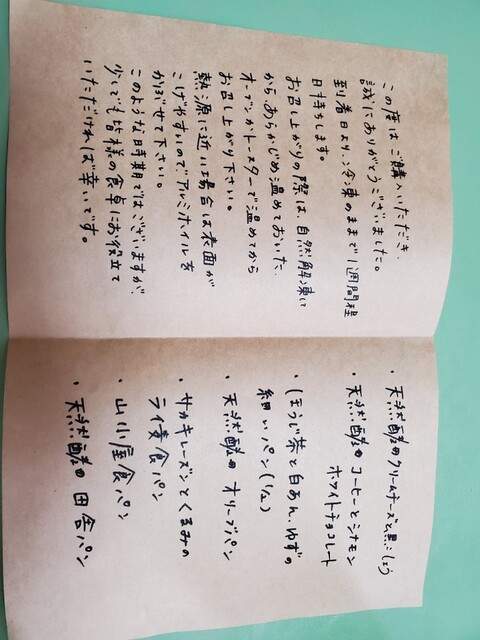 この度は、ご購入いただき、
誠にありがとうございました。
到着日より、冷凍のままで1週間程
日持ちします。
お召し上がりの際は、自然解凍して
から、あらかじめ温めておいた、
オーブンかトースターで温めてから
お召し上がり下さい。
熱源に近い場合は表面が
こげやすいので、アルミホイルを
かぶせて下さい。
このような時期ではございますが、
少しでも皆様の食卓にお役立て
いただければ幸いです。
・天然酵母のクリームチーズと黒こしょう
・天然酵母のコーヒーとシナモン
ホワイトチョコレート
・ほうじ茶と白あん、ゆずの
細いパン(1/2)
・天然酵母のオリーブパン
・サカキレーズンとくるみの
ライ麦食パン
・山小屋食パン
・天然酵母の田舎パン